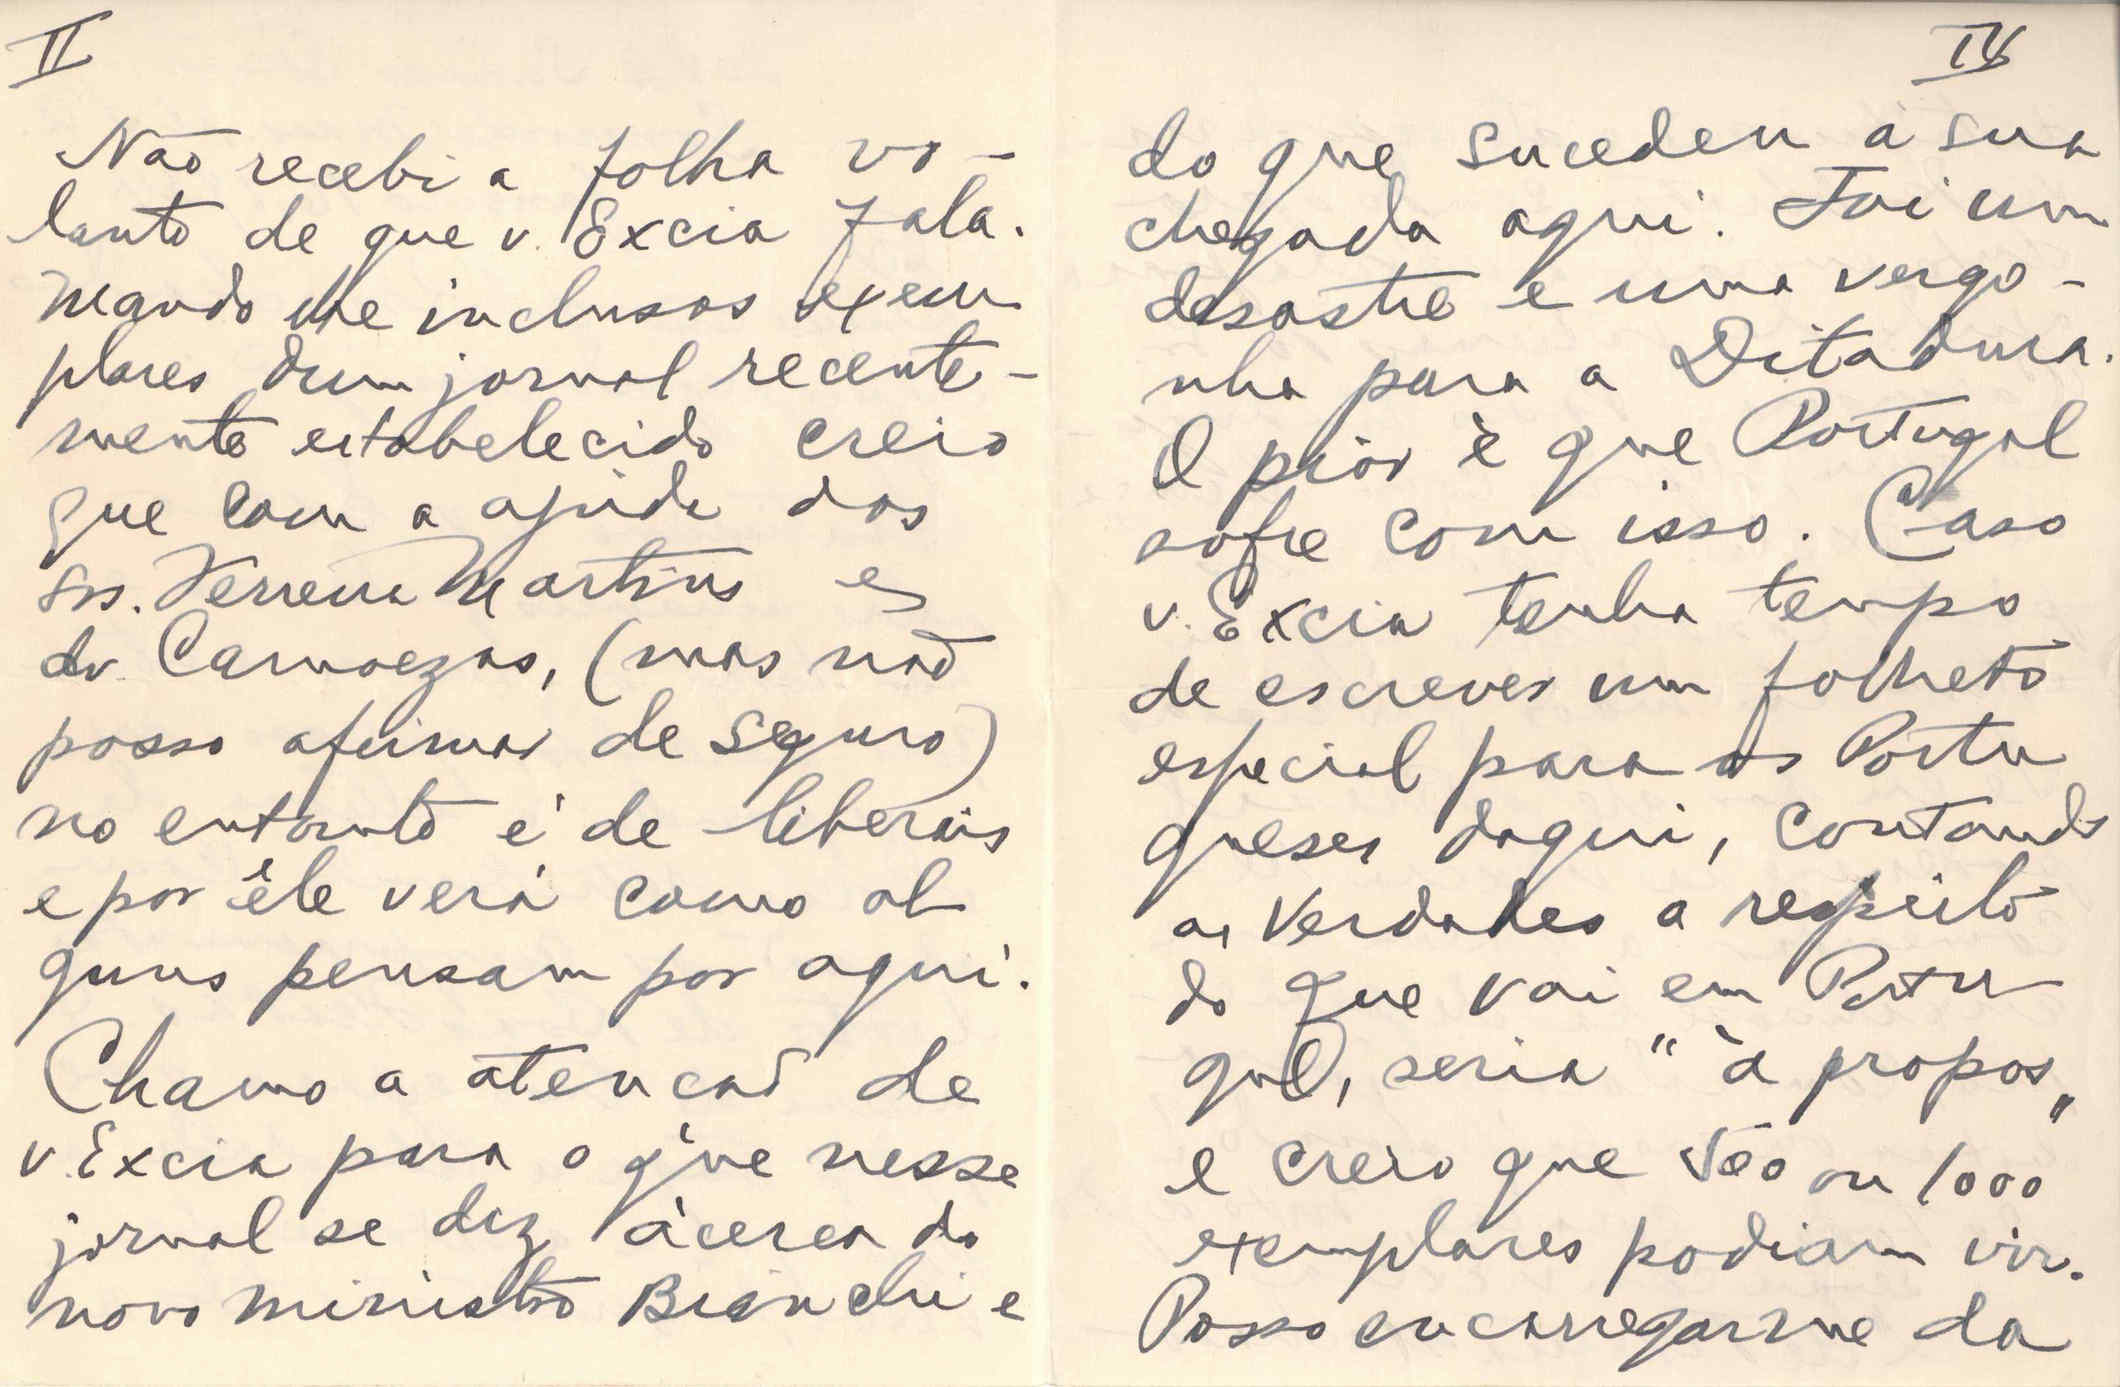 II
Não recebi a folha vo-
lante de que v. Excia fala.
Mando lhe inclusos exem
plares dum jornal recente-
mente estabelecido creio
que com a ajuda dos
srs. Ferreira Martins e
dr. Camoezas, (mas não
posso afirmar de seguro)
no entanto é de liberais
e por êle verá como al
guns pensam por aqui.
Chamo a atencão de
v. Excia para o que nesse
jornal se diz ácerca do
novo ministro Bianchi e
IV
do que sucedeu á sua
chegada aqui. Foi um
desastre e uma vergo-
nha para a Ditadura.
O piór è que Portugal
sofre com isso. Caso
v. Excia tenha tempo
de escrever um folheto
especial para os Portu
gueses daqui, contando
as verdades a respeito
do que vai em Portu
gal, seria "à propos"
e creio que 500 ou 1000
exemplares podiam vir.
Posso encarregarme da